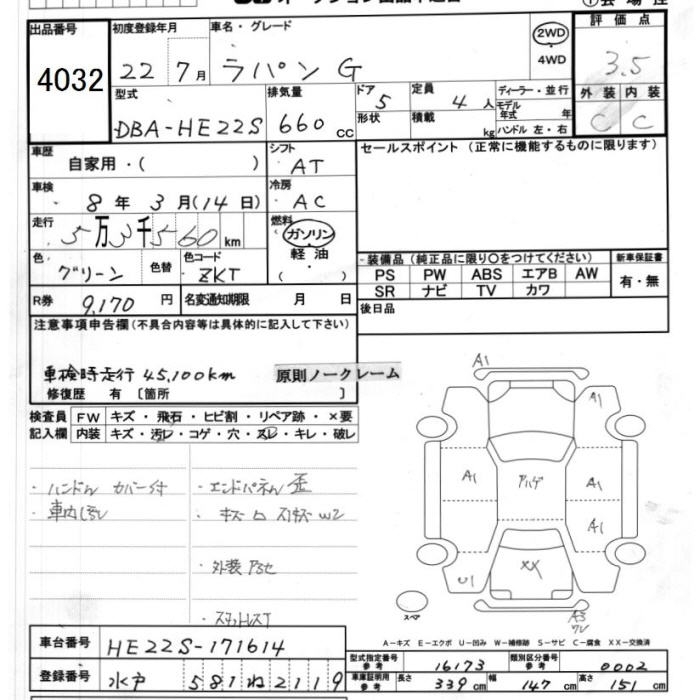 出品番号 4032
初度登録年月 22 7月
車名・グレード ラパン G
2WD
4WD
評価点 3.5
外装 内装
C C
型式 DBA-HE22S
排気量 660 cc
ドア 5
定員 4 人
形状
積載 kg
ディーラー・並行
モデル年式 年
ハンドル 左・右
車歴 自家用・( )
シフト AT
セールスポイント (正常に機能するものに限ります)
車検 8年 3月(14日)
冷房 AC
走行 5万3千560 km
燃料 ガソリン
軽油
( )
色 グリーン
色替
色コード ZKT
・装備品(純正品に限り○をつけてください)
新車保証書
PS PW ABS エアB AW
有・無
SR ナビ TV カワ
R券 9,170 円
名変通知期限 月 日
後日品
注意事項申告欄(不具合内容等は具体的に記入して下さい)
車検時走行 45,100km
原則ノークレーム
修復歴 有 〔箇所 〕
検査員 FW キズ・飛石・ヒビ割・リペア跡・×要
記入欄 内装 キズ・汚レ・コゲ・穴・スレ・キレ・破レ
・ハンドル カバー付
・エンドパネル 歪
・車内汚レ
・外装
A1
A1
A1
アハゲ
A1
A1
XX
U1
スペア
A-キズ E-エクボ U-凹み W-補修跡 S-サビ C-腐食 XX-交換済
車台番号 HE22S-171614
型式指定番号 参考 16173
類別区分番号 参考 0002
登録番号 水戸 581 ね 2119
車庫証明用 参考 長さ 339 cm 幅 147 cm 高さ 151 cm